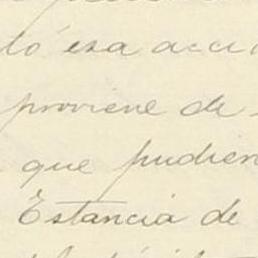 tó esa acci
proviene de
que pudien
Estancia de